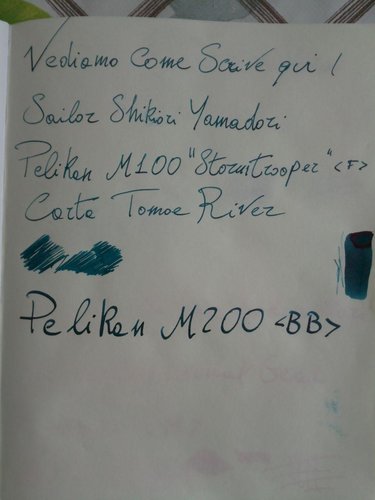 Vediamo Come Scrive qui !
Sailor Shikiori Yamadori
Pelikan M100 "Stormtrooper" <F>
Carta Tomoe River
Pelikan M200 <BB>